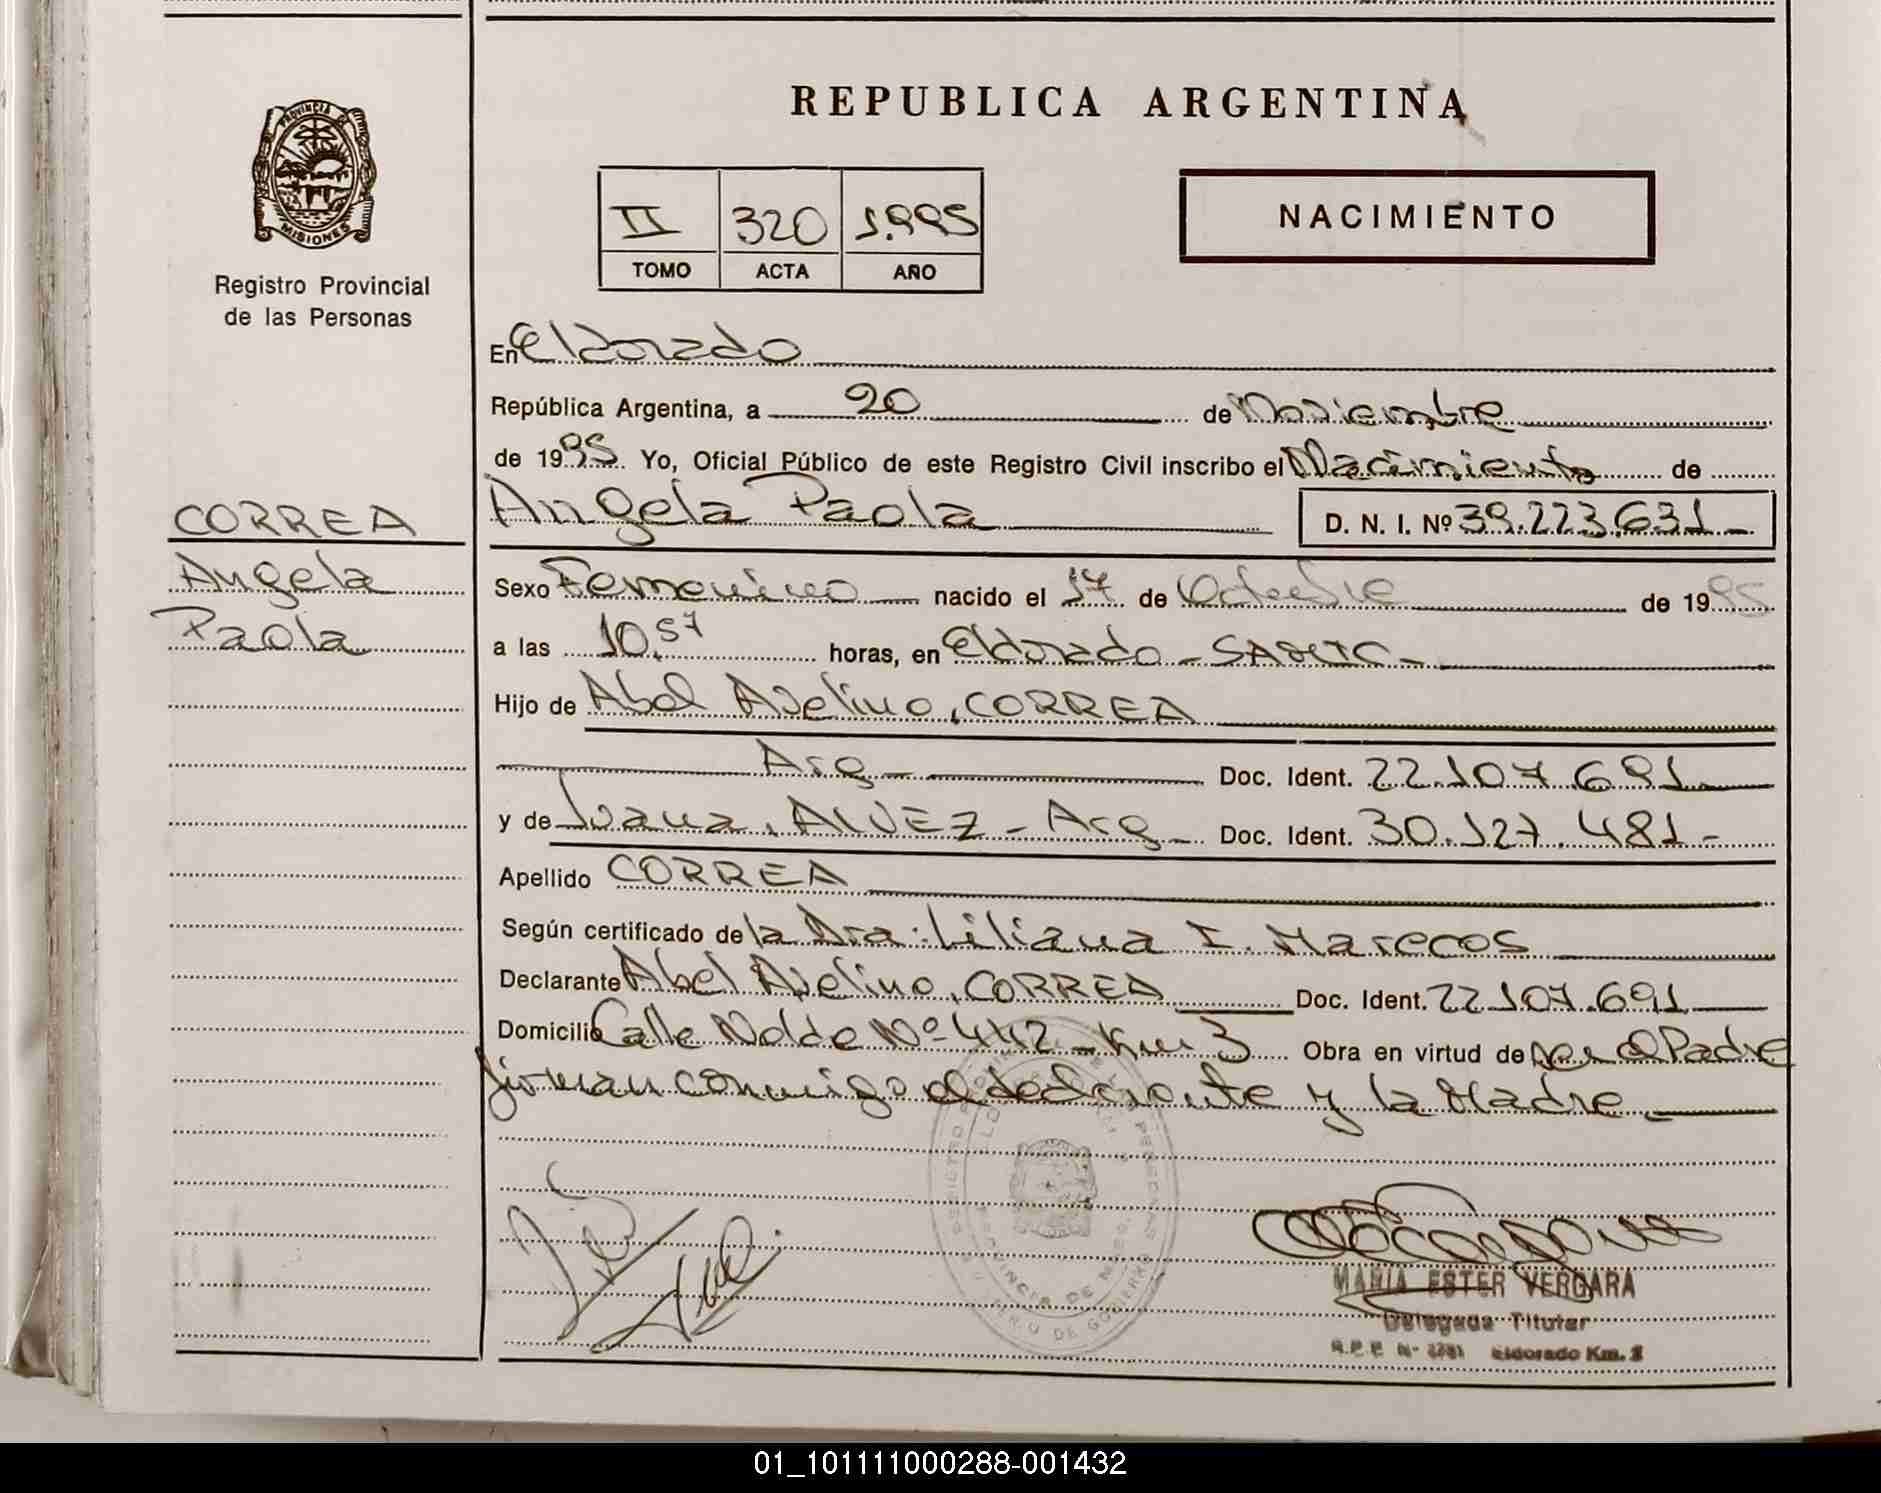 REPUBLICA ARGENTINA
PROVINCIA DE
MISIONES
Registro Provincial
de las Personas
II 320 1.995
TOMO ACTA AÑO
NACIMIENTO
En Eldorado
República Argentina, a 20 de Noviembre
de 1995 Yo, Oficial Público de este Registro Civil inscribo el Nacimiento de
Angela Paola D. N. I. Nº 39.223.631-
CORREA
Angela
Paola
Sexo Femenino nacido el 17 de Octubre de 1995
a las 10.57 horas, en Eldorado -
Hijo de Abel Avelino, CORREA
Arg- Doc. Ident. 22.107.691-
y de Juana, ALVEZ - Arg- Doc. Ident. 30.127.481-
Apellido CORREA
Según certificado de la Dra. Liliana I. Marecos
Declarante Abel Avelino, CORREA Doc. Ident. 22.107.691
Domicilio Calle Nº 442 - Km 3 Obra en virtud de ser el Padre
firman conmigo el declarante y la Madre -
MARIA ESTER VERGARA
Delegada Titular
Eldorado Km.
01_101111000288-001432